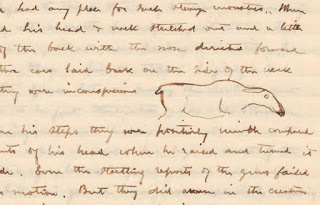 had any place for such things mounties.. When
his head & neck stretched out and a little
of the back with the nose directed forward
ears laid back on the side of the neck
they were inconspicuous
his steps they were positively nimble compared
of his head when he raised and turned it
Even the startling reports of the guns failed
motion. But they did in the